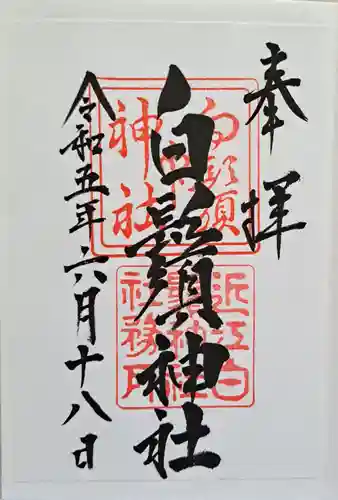 奉拝
白鬚神社
令和五年六月十八日
近江白
鬚神社
社務所